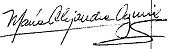 María Alejandra Aguirre